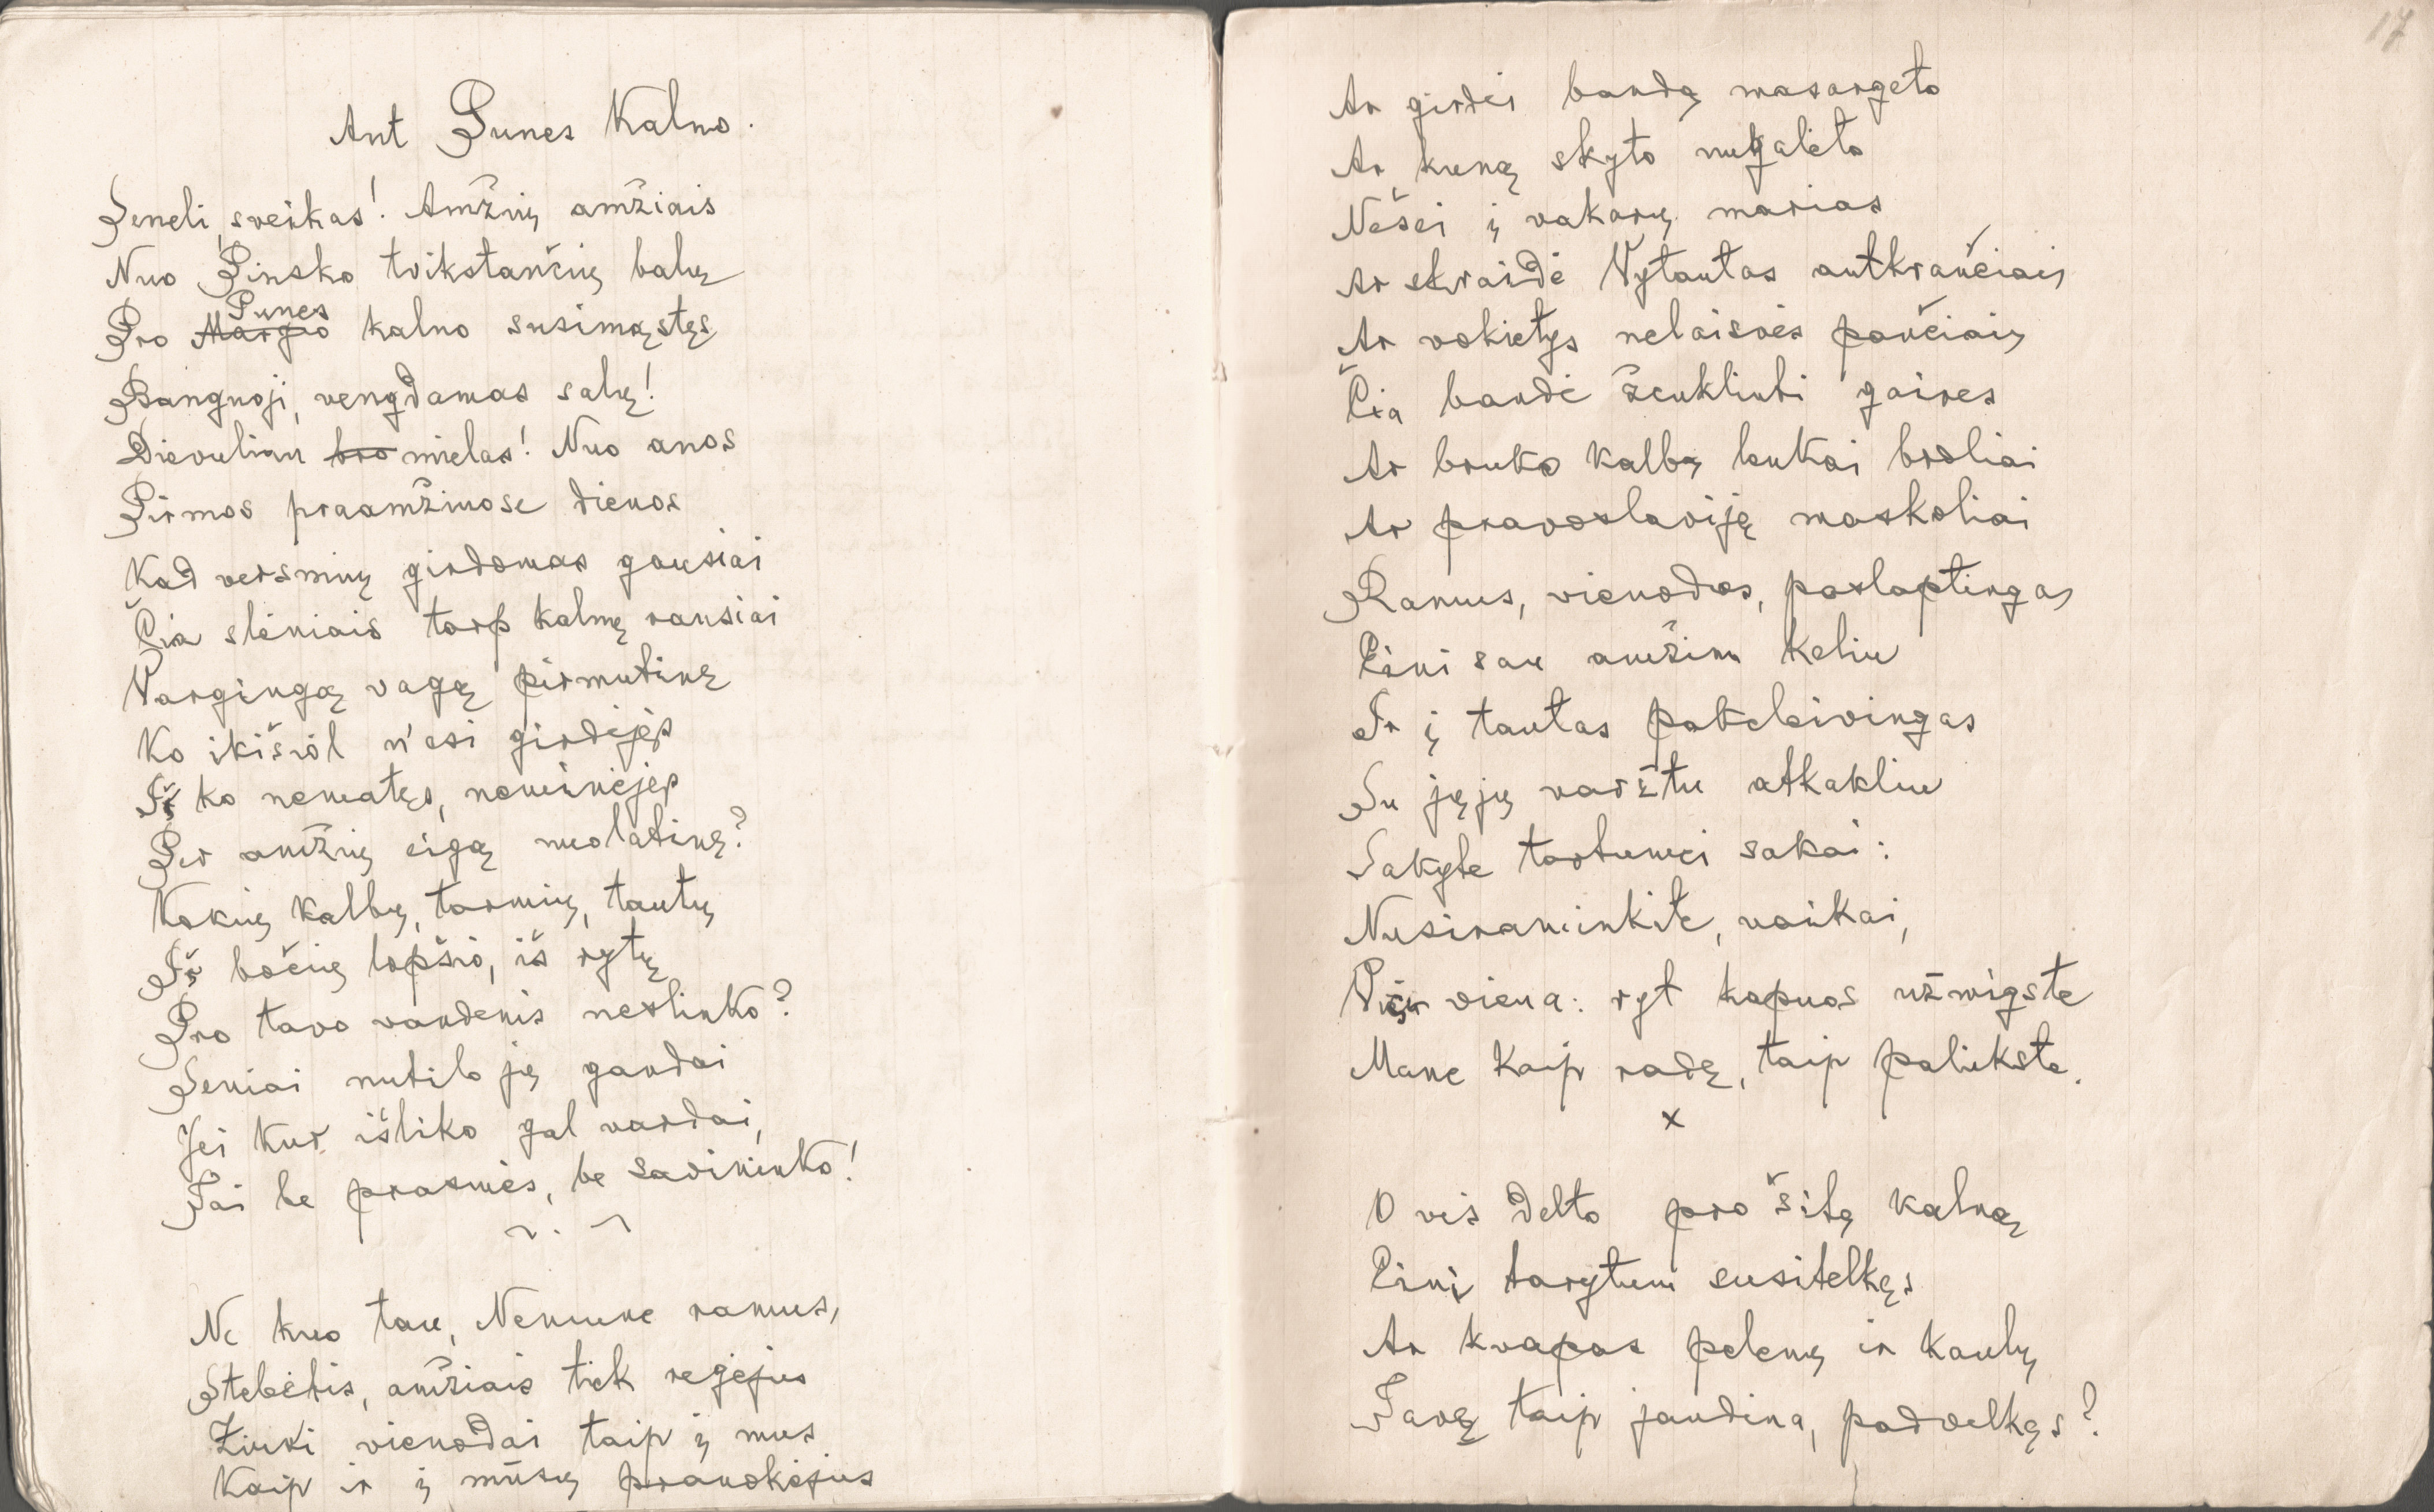 Ant Punės Kalno.
Seneli, sveikas! Amžių amžiais
Nuo Pinsko tvikstančių balų
Pro Margio Punės kalno susimąstęs
Banguoji, vengdamas salų!
Dievuliau bro mielas! Nuo anos
Pirmos praamžinose dienos
Kad versmių girdomas gausiai
Čia slėniais tarp kalnų rausiai
Vargingą vagą pirmutinę
Ko ikišiol n'esi girdėjęs
Iš ko nematęs, neminėjęs
Per amžių eigą nuolatinę?
Kokių kalbų, tarmių, tautų
Iš bočių lopšio, iš rytų
Pro tavo vandenis neslinko?
Seniai nutilo jų gandai
Jei kur išliko gal vardai,
Tai be prasmės, be savininko!
Ne kuo tau, Nemune ramus,
Stebėtis, amžiais tiek regėjus
Žiuri vienodai taip į mus
Kaip ir į mūsų pranokėjus
17
Ar girdei bandą masargeto
Ar kuną skyto nugalėto
Nešei į vakarų marias
Ar skraidė Vytautas antkrančiais
Ar vokietys nelaisvės pančiais
Čia bandė ženklinti gaires
Ar bruko kalbą lenkai broliai
Ar pravoslaviją maskoliai
Ramus, vienodas, paslaptingas
Eini sau amžinu keliu
Ir į tautas pakeleivingas
Su jųjų varžtu atkakliu
Sakyte tartumei sakai:
Nusiraminkite, vaikai,
Visa viena: ryt kapuos užmigste
Mane kaip radę, taip paliekste.
x
O vis delto pro šitą kalną
Eini tarytum susitelkęs
Ar kvapas pelenų ir kaulų
Tavę taip jaudina, padvelkęs?